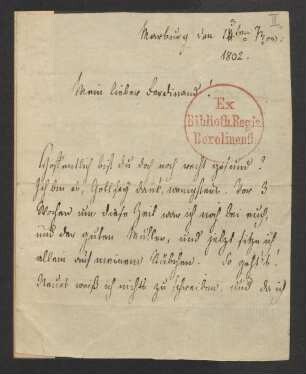 II.
Marburg den 13ten Nov:
1802.
Mein lieber Ferdinand!
Ex
Biblioth. Regia
Berolinensi
Hoffentlich bist du doch noch recht gesund?
Ich bin es, Gottseÿ dank, wenigstens. Vor 3
Wochen um diese Zeit war ich noch bei euch,
und der guten Mutter, und jetzt sitze ich
allein auf meinem Stübchen. So geht's!
Neues weiß ich nichts zu schreiben, und da ich